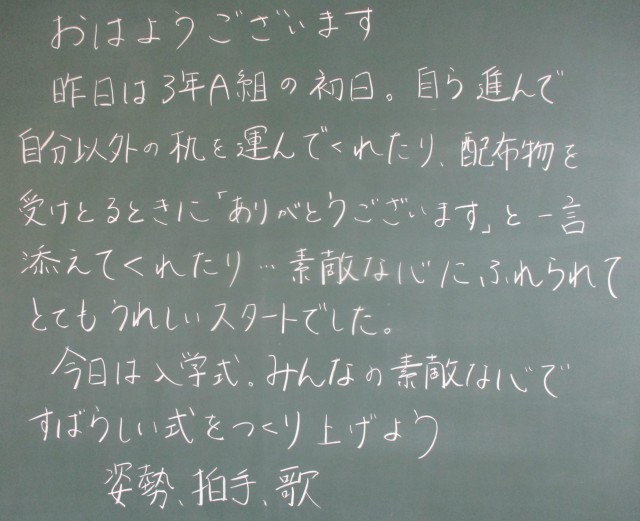 おはようございます
昨日は3年A組の初日。自ら進んで
自分以外の机を運んでくれたり、配布物を
受けとるときに「ありがとうございます」と一言
添えてくれたり…素敵な心にふれられて
とてもうれしいスタートでした。
今日は入学式。みんなの素敵な心で
すばらしい式をつくり上げよう
姿勢、拍手、歌